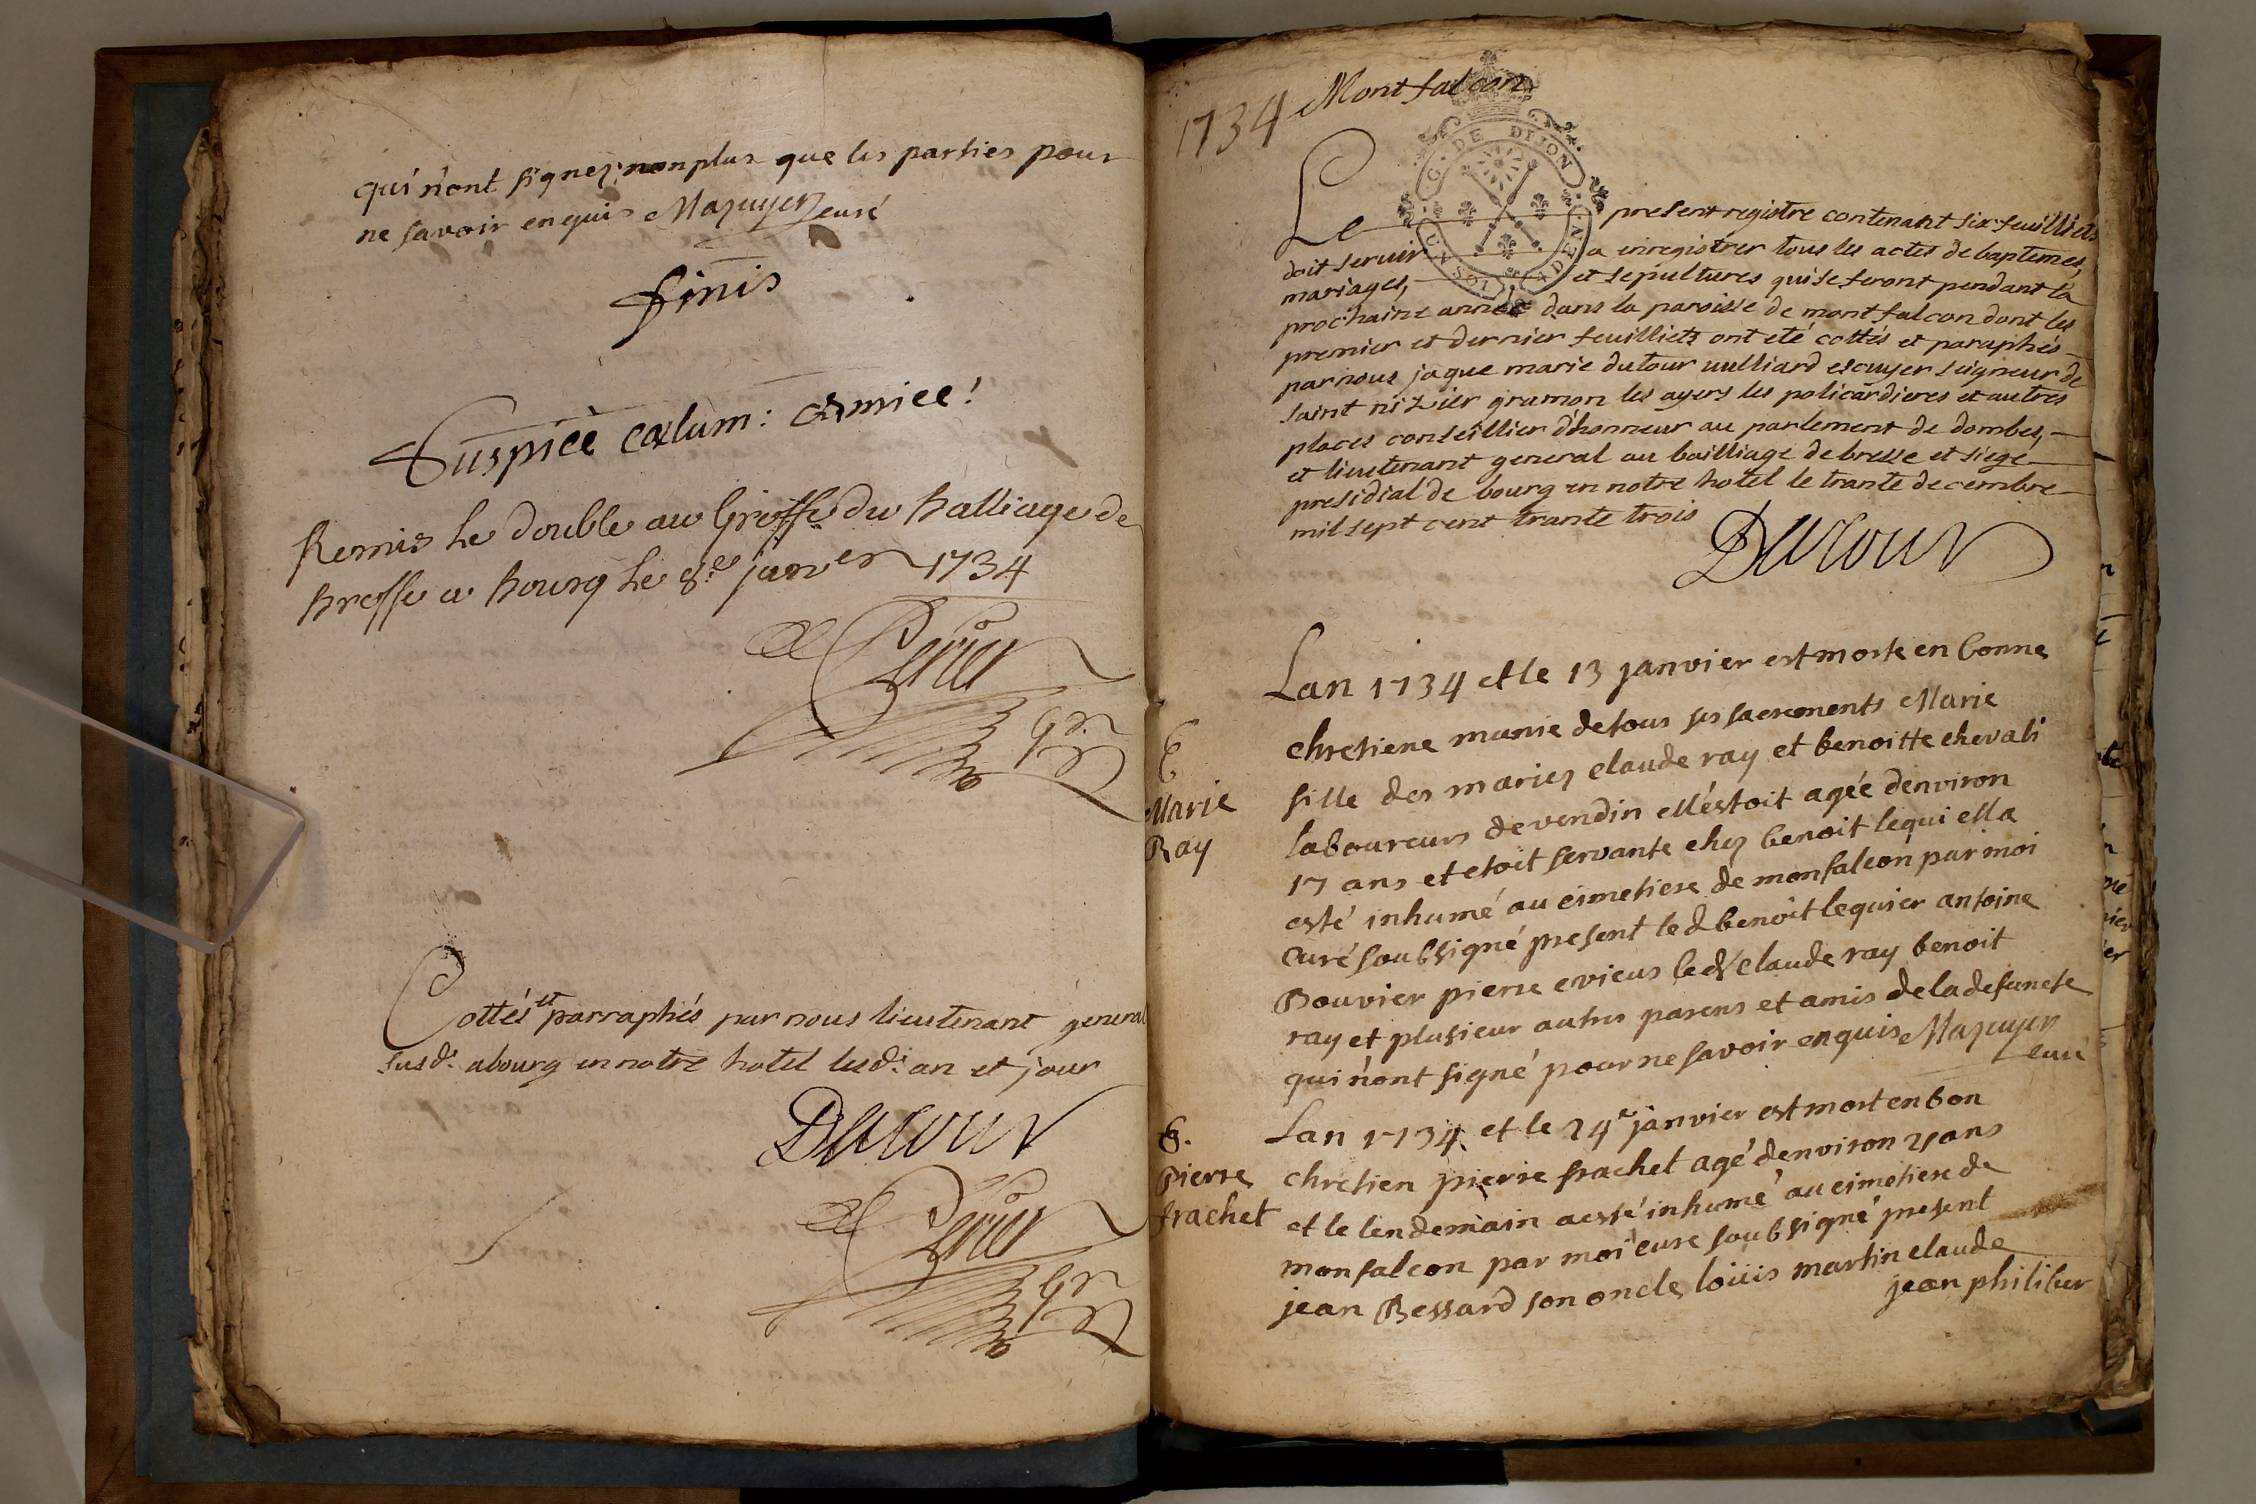 qui n'ont signez nonplus que les parties pour
ne savoir enquis Mazuyer curé
finis
Suspice cœlum: Amice!
Remis le double au Greffe du balliage de
bresse a bourg le 8e janver 1734
Perier
Gr
Cottés et parraphés par nous lieutenant general
susd. abourg en notre hotel lesd. an et jour
Dutour
Perier
Gr
1734 Montfalcon
G. DE DIJON
Le present registre contenant six feuilliets
doit servir a enregistrer tous les actes de baptemes,
mariages, et sepultures qui se feront pendant la
prochaine année dans la paroisse de montfalcon dont les
premier et dernier feuilliets ont eté cottés et paraphés
par nous jaque marie dutour vulliard escuyer seigneur de
saint nizier gramon les ayers les policardieres et autres
places conseillier d'honneur au parlement de dombes,
et lieutenant general au bailliage de bresse et siege
presidial de bourg en notre hotel le trante decembre
mil sept cent trante trois
Dutour
Lan 1734 et le 13 janvier est morte en bonne
chretiene munie detous ses sacrements Marie
fille des mariez claude ray et benoitte chevali
laboureurs de vendin ellestoit agée denviron
17 ans et etoit servante chez benoit lequi ella
esté inhumé au cimetiere de monfalcon par moi
curé soubsigné present led benoit lequier antoine
Bouvier pierre evieus led claude ray benoit
ray et plusieur autres parens et amis de la defuncte
qui n'ont signé pour ne savoir enquis Mazuyer
curé
Marie
Ray
Lan 1734 et le 24e janvier est mort en bon
chretien pierre frachet agé denviron 25 ans
et le lendemain a esté inhumé au cimetiere de
monfalcon par moi curé soubsigné present
jean Bessard son oncle louis martin claude
jean philiber
Pierre
frachet